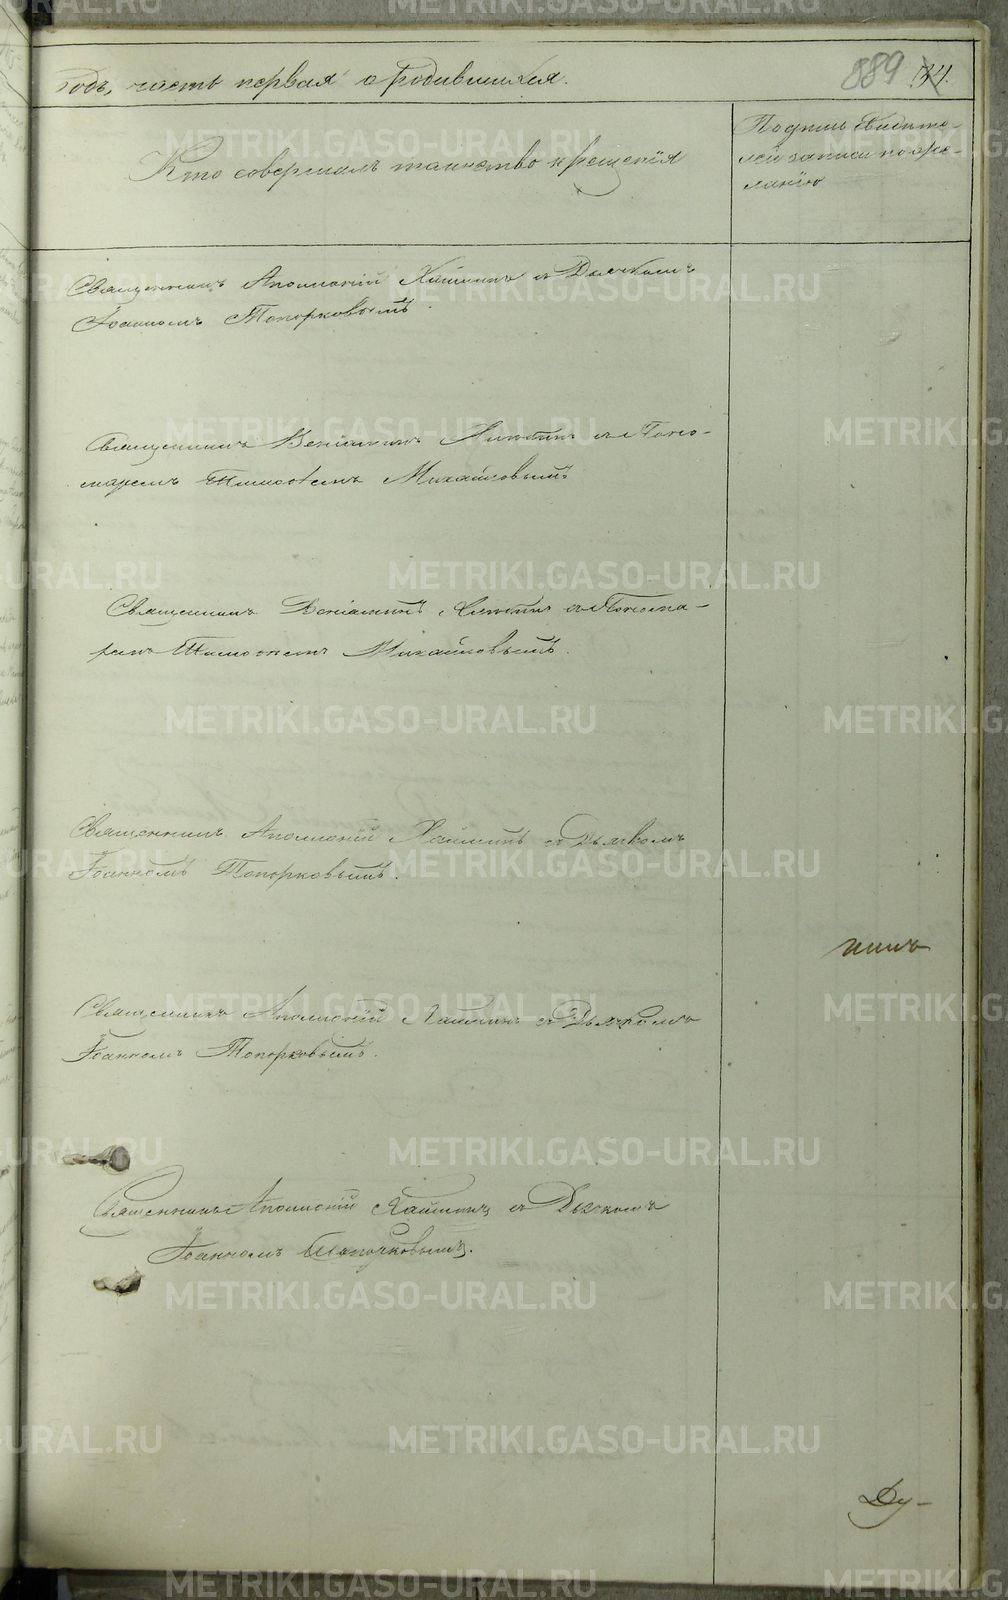 годъ, часть первая о родившихся.
889 34.
Кто совершалъ таинство крещенія
Подписи свидѣте-
лей записи по же-
ланію
Священникъ Аполлоній съ Дьячкомъ
Іоанномъ Топорковымъ.
Священникъ Веніаминъ съ Поно-
маремъ Тимофеемъ Михайловымъ
Священникъ Веніаминъ съ Понома-
ремъ Тимофеемъ Михайловымъ.
Священникъ Аполлоній съ Дьячкомъ
Іоанномъ Топорковымъ.
нинъ
Священникъ Аполлоній съ Дьячкомъ
Іоанномъ Топорковымъ.
Священникъ Аполлоній съ Дьячкомъ
Іоанномъ Топорковымъ.
Ду-
METRIKI.GASO-URAL.RU